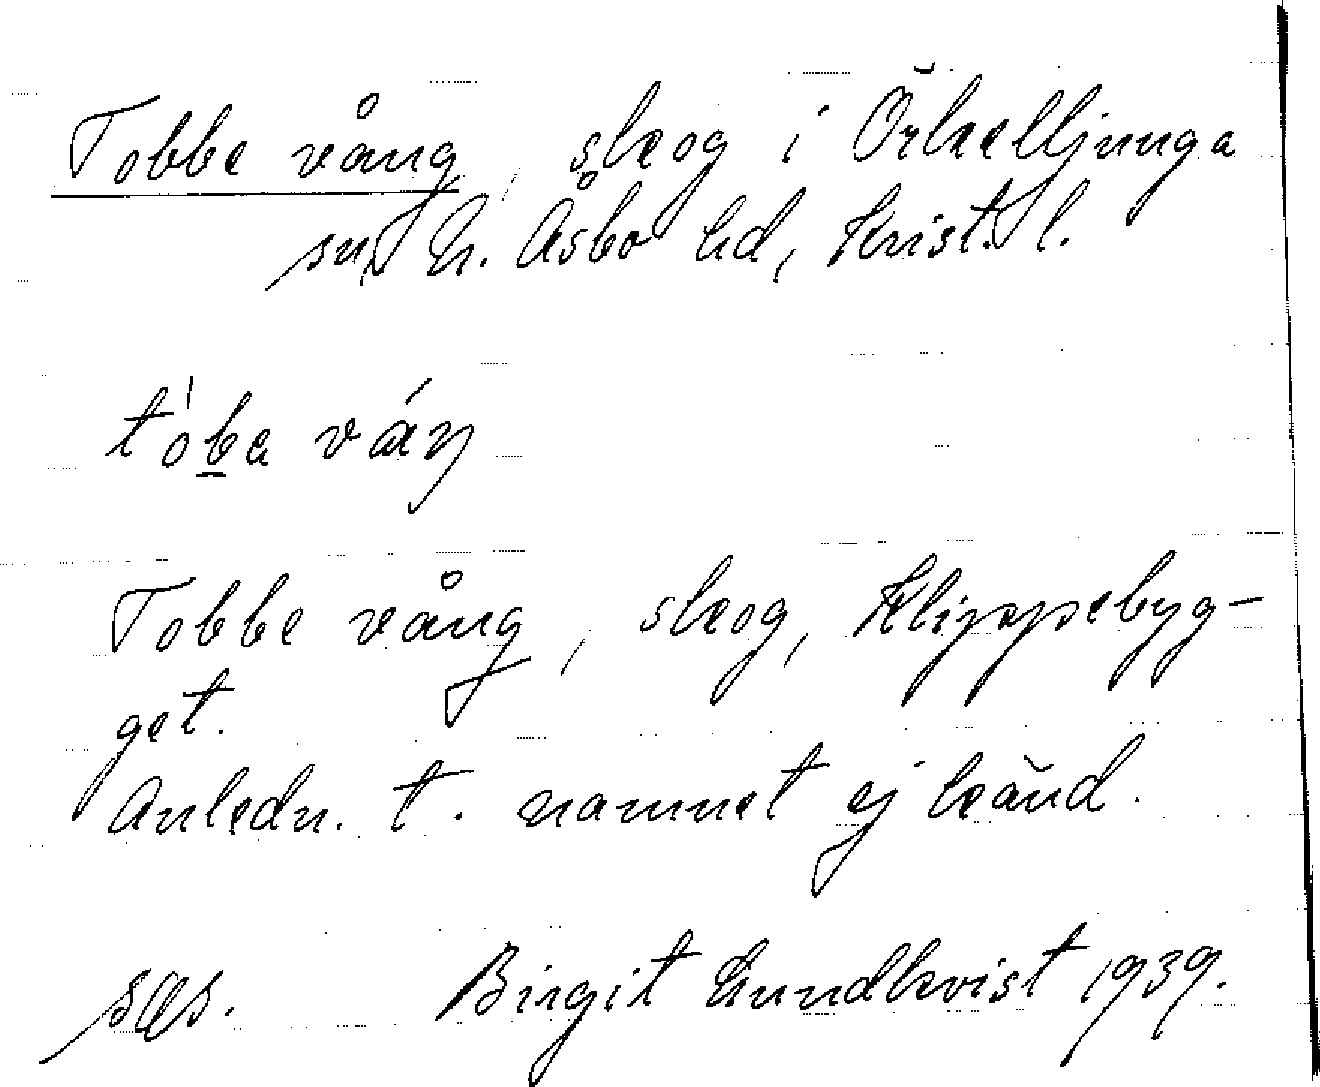 Tobbe vång, skog i Örkelljunga
sn, N. Åsbo hd, Krist. l.
tò̀ba váŋ
Tobbe vång, skog, Klippebyg-
get.
Anledn. t. namnet ej känd.
sgs. Birgit Lundkvist 1939.